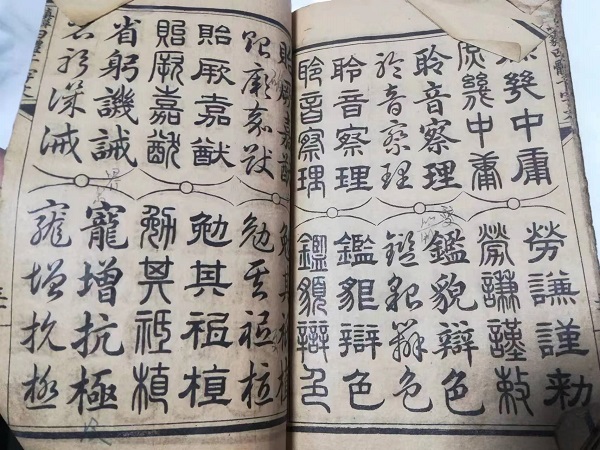 幾中庸
勞謙謹勑
幾中庸
勞謙謹敕
聆音察理
鑑貌辯色
聆音察理
鑑貌辯色
聆音察理
鑑貌辯色
聆音察理
鑑貌辯色
貽厥嘉猷
勉其祗植
貽厥嘉猷
勉其祗植
貽厥嘉猷
勉其祗植
貽厥嘉猷
勉其祗植
省躬譏誡
寵增抗極
省躬譏誡
寵增抗極